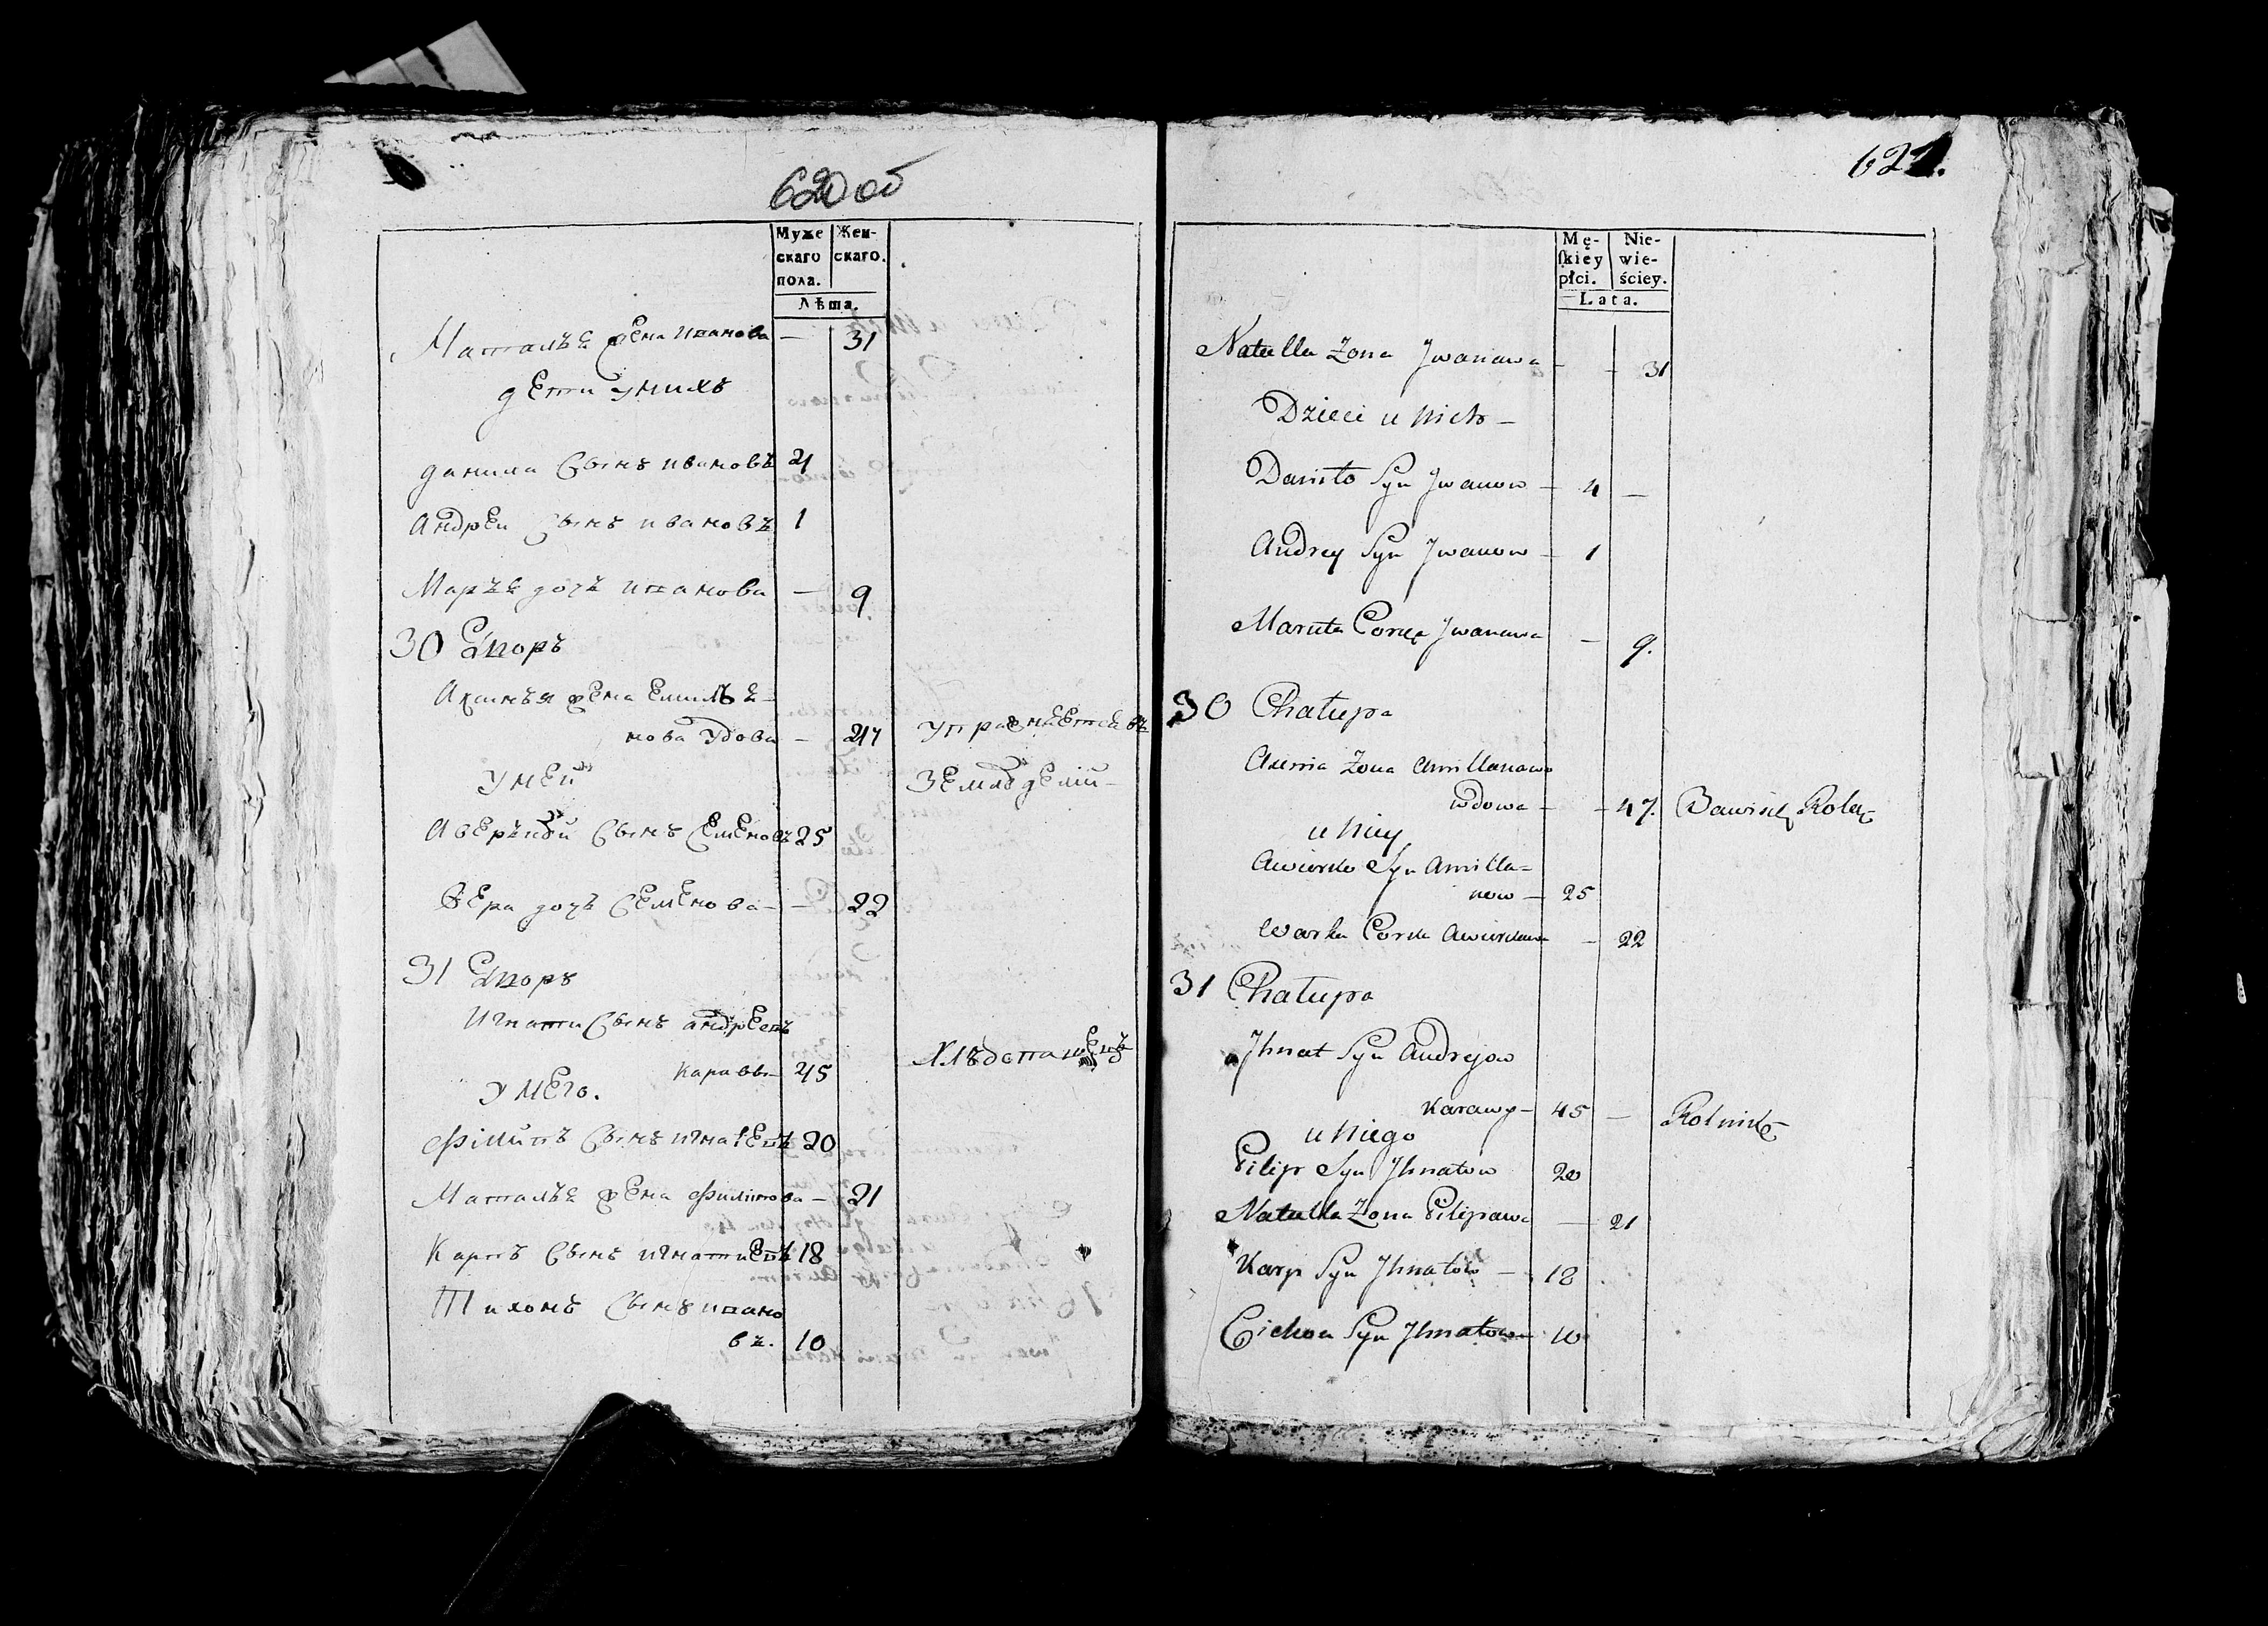 620 об
Муже
скаго
пола.
Жен-
скаго.
Лѣта.
Наталья жена Иванова — 31
дети у нихъ
данила Сынъ ивановъ 4
Андреи Сынъ ивановъ 1
Марья дочь иванова — 9
30 Дворъ
Аксинья жена Емилья-
нова удова — 47 упражняется въ
у неи земледелии
Аверьки Сынъ Семеновъ 25
Вера дочь Семенова — 22
31 Дворъ
Игнати Сынъ андреевъ
Каравы 45 Хлебопашецъ
у него.
Филипъ Сынъ игнатевъ 20
Наталья жена филипова — 21
Карпъ Сынъ игнатиевъ 18
Тихонъ Сынъ ивано
въ. 10
621.
Mę-
skiey
płci.
Nie-
wie-
ściey.
Lata.
Natalla Zona Jwanawa — 31
Dzieci u nich —
Daniło Syn Jwanow — 4 —
Andrey Syn Jwanow — 1
Maruta Corka Jwanawa — 9.
30 Chałupa
Axenia Zona Amillanawa
wdowa — 47. Bawi się Rolą
u Niey
Awierko Syn Amilla=
now — 25
Warka Corka — 22
31 Chałupa
Jhnat Syn Andrejow
Karawy — 45 — Rolnik
u Niego
Pilip Syn Jhnatow 20
Natalla Zona Pilipawa — 21
Karp Syn Jhnatow — 18
Cichon Syn Jhnatow 10